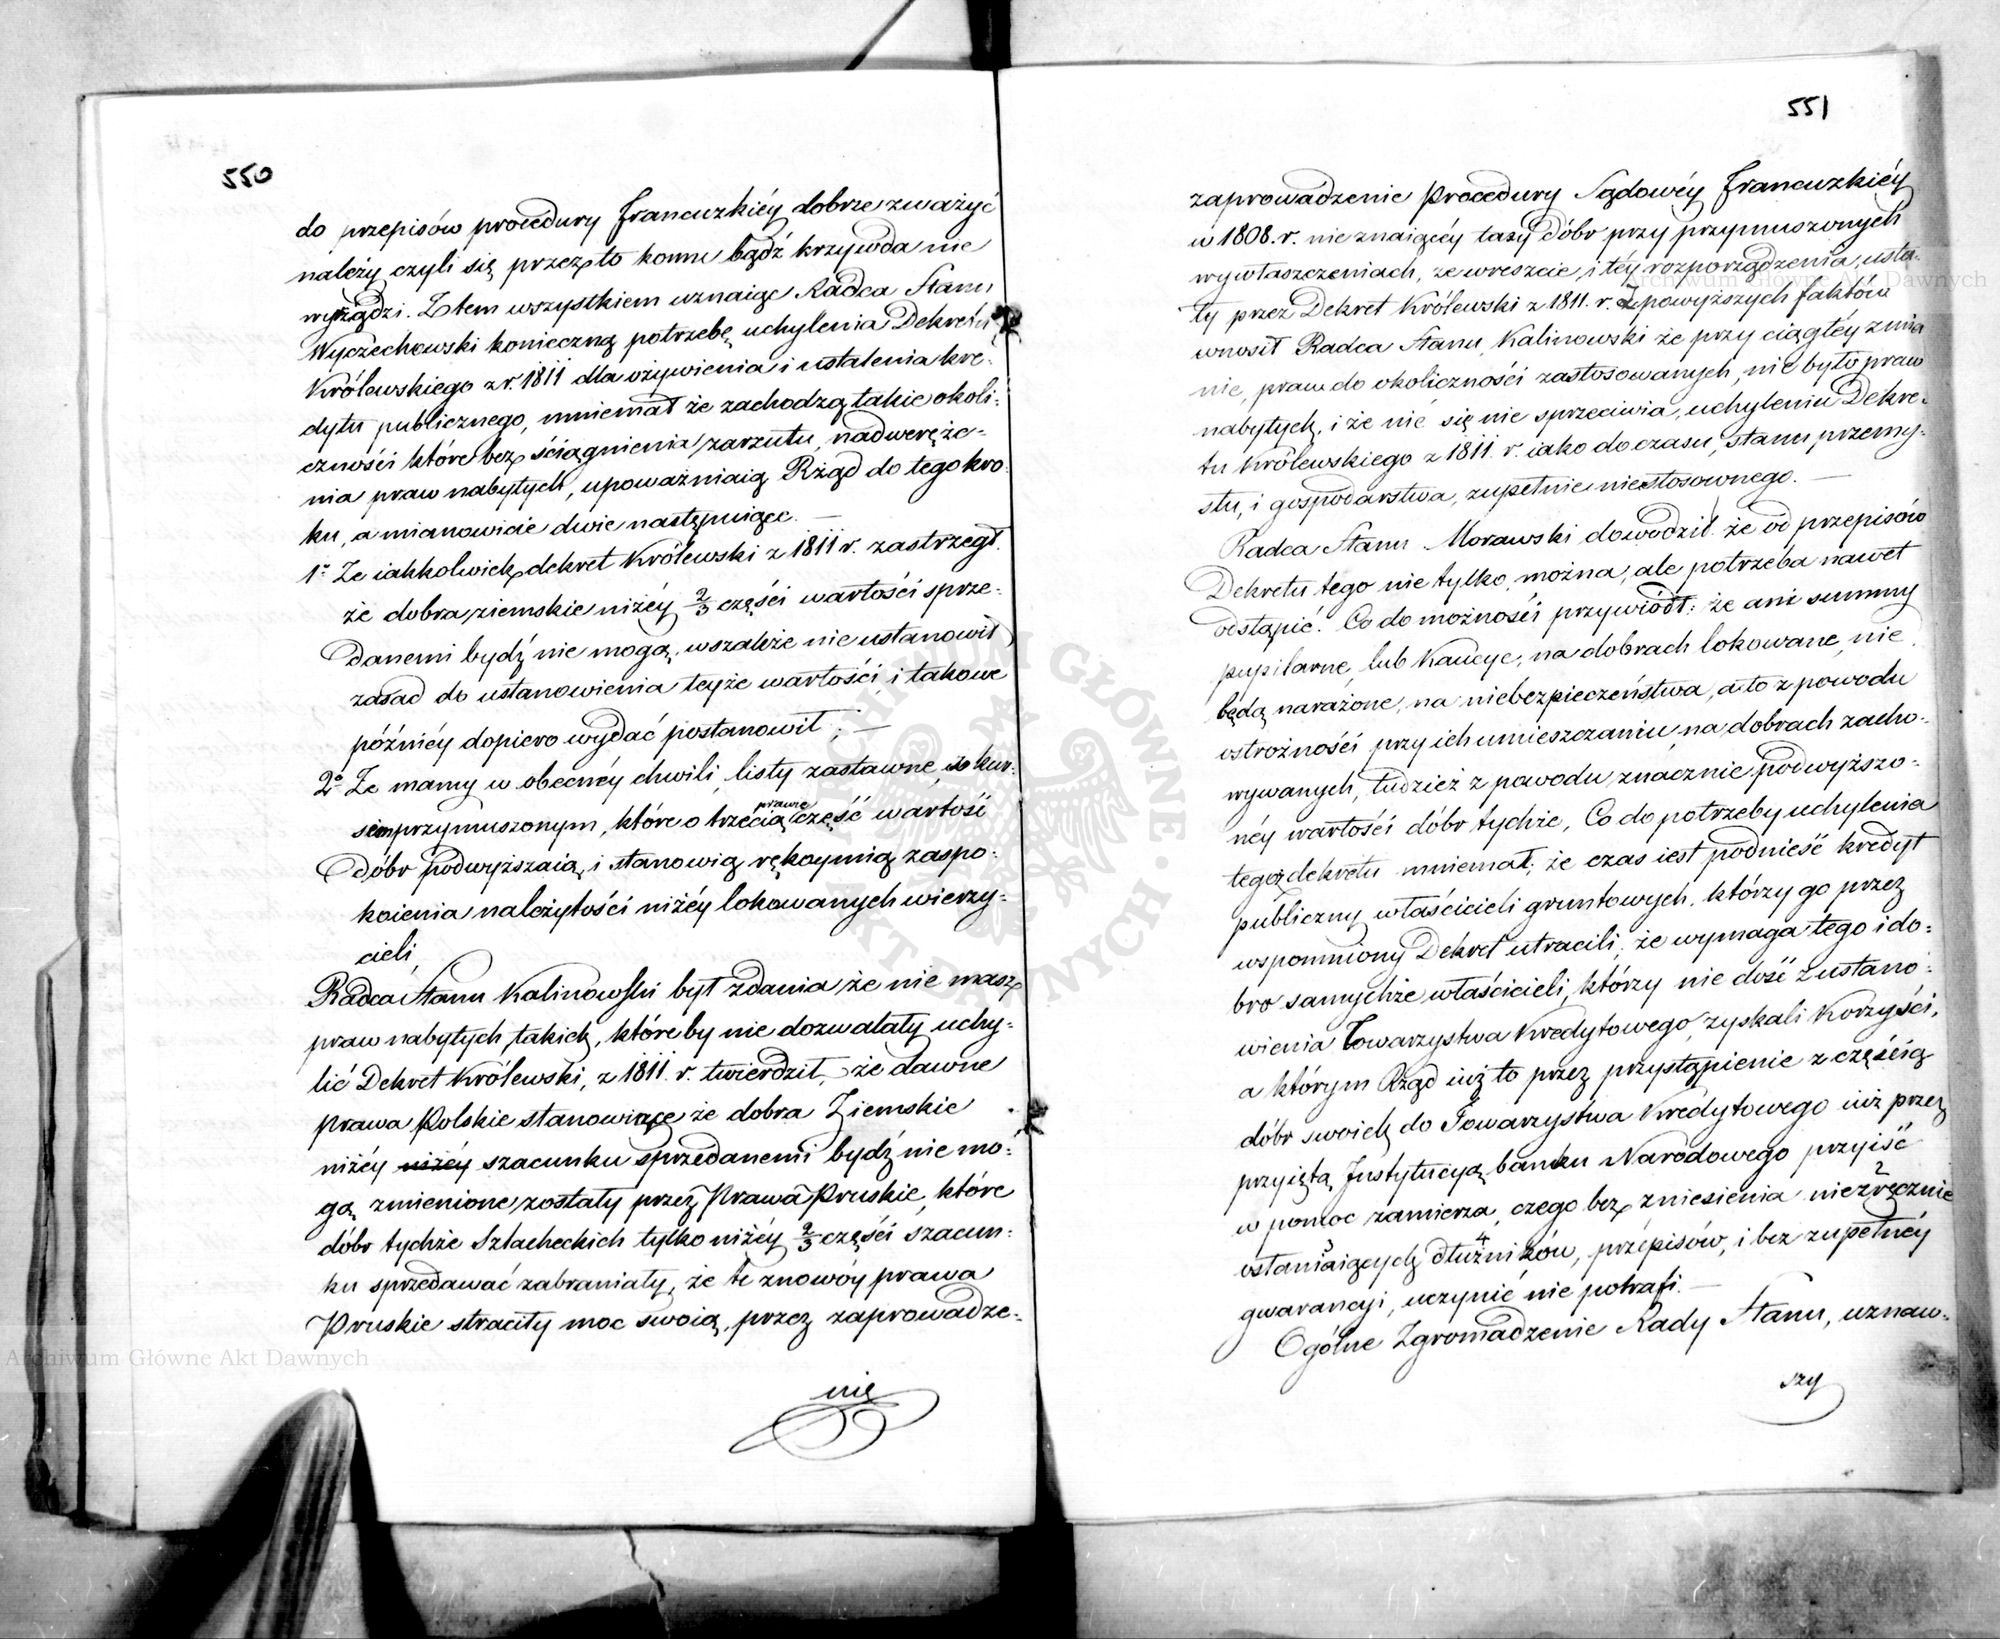 550
do przepisów procedury francuzkiéy dobrze zważyć
należy czyli się przez to komu bądź krzywda nie
wyrządzi. Z tem wszystkiem uznaiąc Radca Stanu
Wyczechowski konieczną potrzebę uchylenia Dekretu
Królewskiego z r. 1811 dla ożywienia i ustalenia kre-
dytu publicznego, mniemał że zachodzą takie okoli-
czności które bez ściągnienia zarzutu, nadweręże-
nia praw nabytych, upoważniaią Rząd do tego kro-
ku, a mianowicie dwie następuiące. —
1° Że iakkolwiek dekret Królewski z 1811 r. zastrzegł
że dobra ziemskie niżéy 2/3 części wartości sprze-
danemi bydź nie mogą, wszakże nie ustanowił
zasad do ustanowienia teyże wartości i takowe
późniéy dopiero wydać postanowił; —
2° Że mamy w obecnéy chwili, listy zastawne, z kur-
sem przymuszonym, które o trzecią prawie część wartość
dóbr podwyższaią, i stanowią rękoymią zaspo-
koienia należytości niżéy lokowanych wierzy-
cieli,
Radca Stanu Kalinowski był zdania, że nie masz
praw nabytych takich, które by nie dozwalały uchy-
lić Dekret Królewski, z 1811. r. twierdził, że dawne
prawa Polskie stanowiące że dobra Ziemskie
niżéy niżéy szacunku sprzedanemi bydź nie mo-
gą, zmienione zostały przez Prawa Pruskie, które
dóbr tychże Szlacheckich tylko niżéy 2/3 części szacun-
ku sprzedawać zabraniały, że te znowóy prawa
Pruskie straciły moc swoią, przez zaprowadze-
nie
551
zaprowadzenie Procedury Sądowéy francuzkiéy
w 1808. r. nieznaiącéy taxy dóbr przy przymuszonych
wywłaszczeniach, że wreszcie, i téy rozporządzenia, usta-
ły przez Dekret Królewski z 1811. r. Z powyższych faktów
wnosił Radca Stanu Kalinowski że przy ciągłéy zmia
nie, praw do okoliczności zastosowanych, nie było praw
nabytych, i że nic się nie sprzeciwia, uchyleniu Dekre-
tu Królewskiego z 1811. r. iako do czasu, stanu przemy-
słu, i gospodarstwa, zupełnie niestosownego. —
Radca Stanu Morawski dowodził że od przepisów
Dekretu tego nie tylko można, ale potrzeba nawet
odstąpić. Co do możności przywiódł: że ani summy
pupilarne, lub Kaucye, na dobrach lokowane, nie
będą narażone, na niebezpieczeństwa, a to z powodu
ostrożności przy ich umieszczaniu, na dobrach zacho-
wywanych, tudzież z powodu, znacznie podwyższo-
néy wartości dóbr tychże, Co do potrzeby uchylenia
tegoż dekretu mniemał, że czas iest podnieść kredyt
publiczny właścicieli gruntowych, którzy go przez
wspomniony Dekret utracili, że wymaga tego i do-
bro samychże właścicieli, którzy nie dość z ustano-
wienia Towarzystwa Kredytowego, zyskali Korzyści,
a którym Rząd iuż to przez przystąpienie z częścią
dóbr swoich do Towarzystwa Kredytowego iuż przez
przyiętą Instytucyą banku Narodowego przyiść
w pomoc zamierza, czego bez zniesienia niezręcznie 2
ostaniaiących 3 dłużników 4, przepisów, i bez zupełnéy
gwarancyi, uczynić nie potrafi. —
Ogólne Zgromadzenie Rady Stanu, uznaw-
szy
Archiwum Główne Akt Dawnych
Archiwum Główne Akt Dawnych
ARCHIWUM GŁÓWNE AKT DAWNYCH